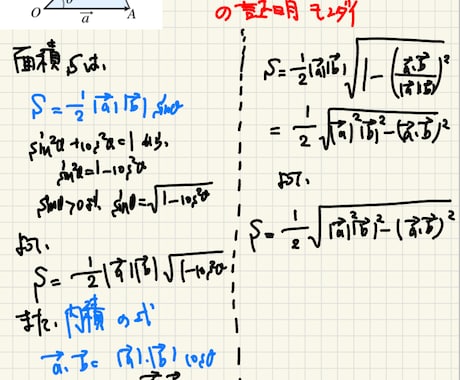 O a→ A
面積Sは、
S = 1/2 |a→||b→| sinθ
sin²θ + cos²θ = 1 より、
sin²θ = 1 - cos²θ
sinθ > 0 より、sinθ = √(1 - cos²θ)
よって、
S = 1/2 |a→||b→| √(1 - cos²θ)
また、内積の式
a→・b→ = |a→|・|b→| cosθ
の証明モンダイ
S = 1/2 |a→||b→| √(1 - (a→・b→ / |a→||b→|)²)
= 1/2 √(|a→|²|b→|² - (a→・b→)²)
よって、
S = 1/2 √(|a→|²|b→|² - (a→・b→)²)